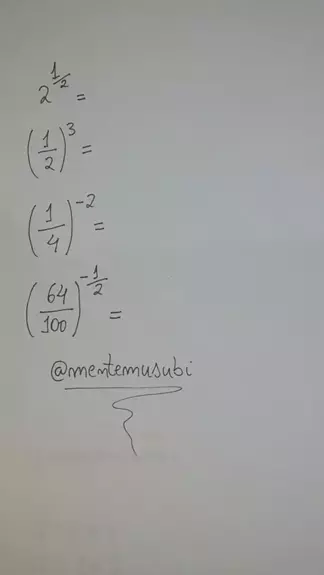 2^{\frac{1}{2}} =
\left(\frac{1}{2}\right)^3 =
\left(\frac{1}{4}\right)^{-2} =
\left(\frac{64}{100}\right)^{-\frac{1}{2}} =
@mentemusubi